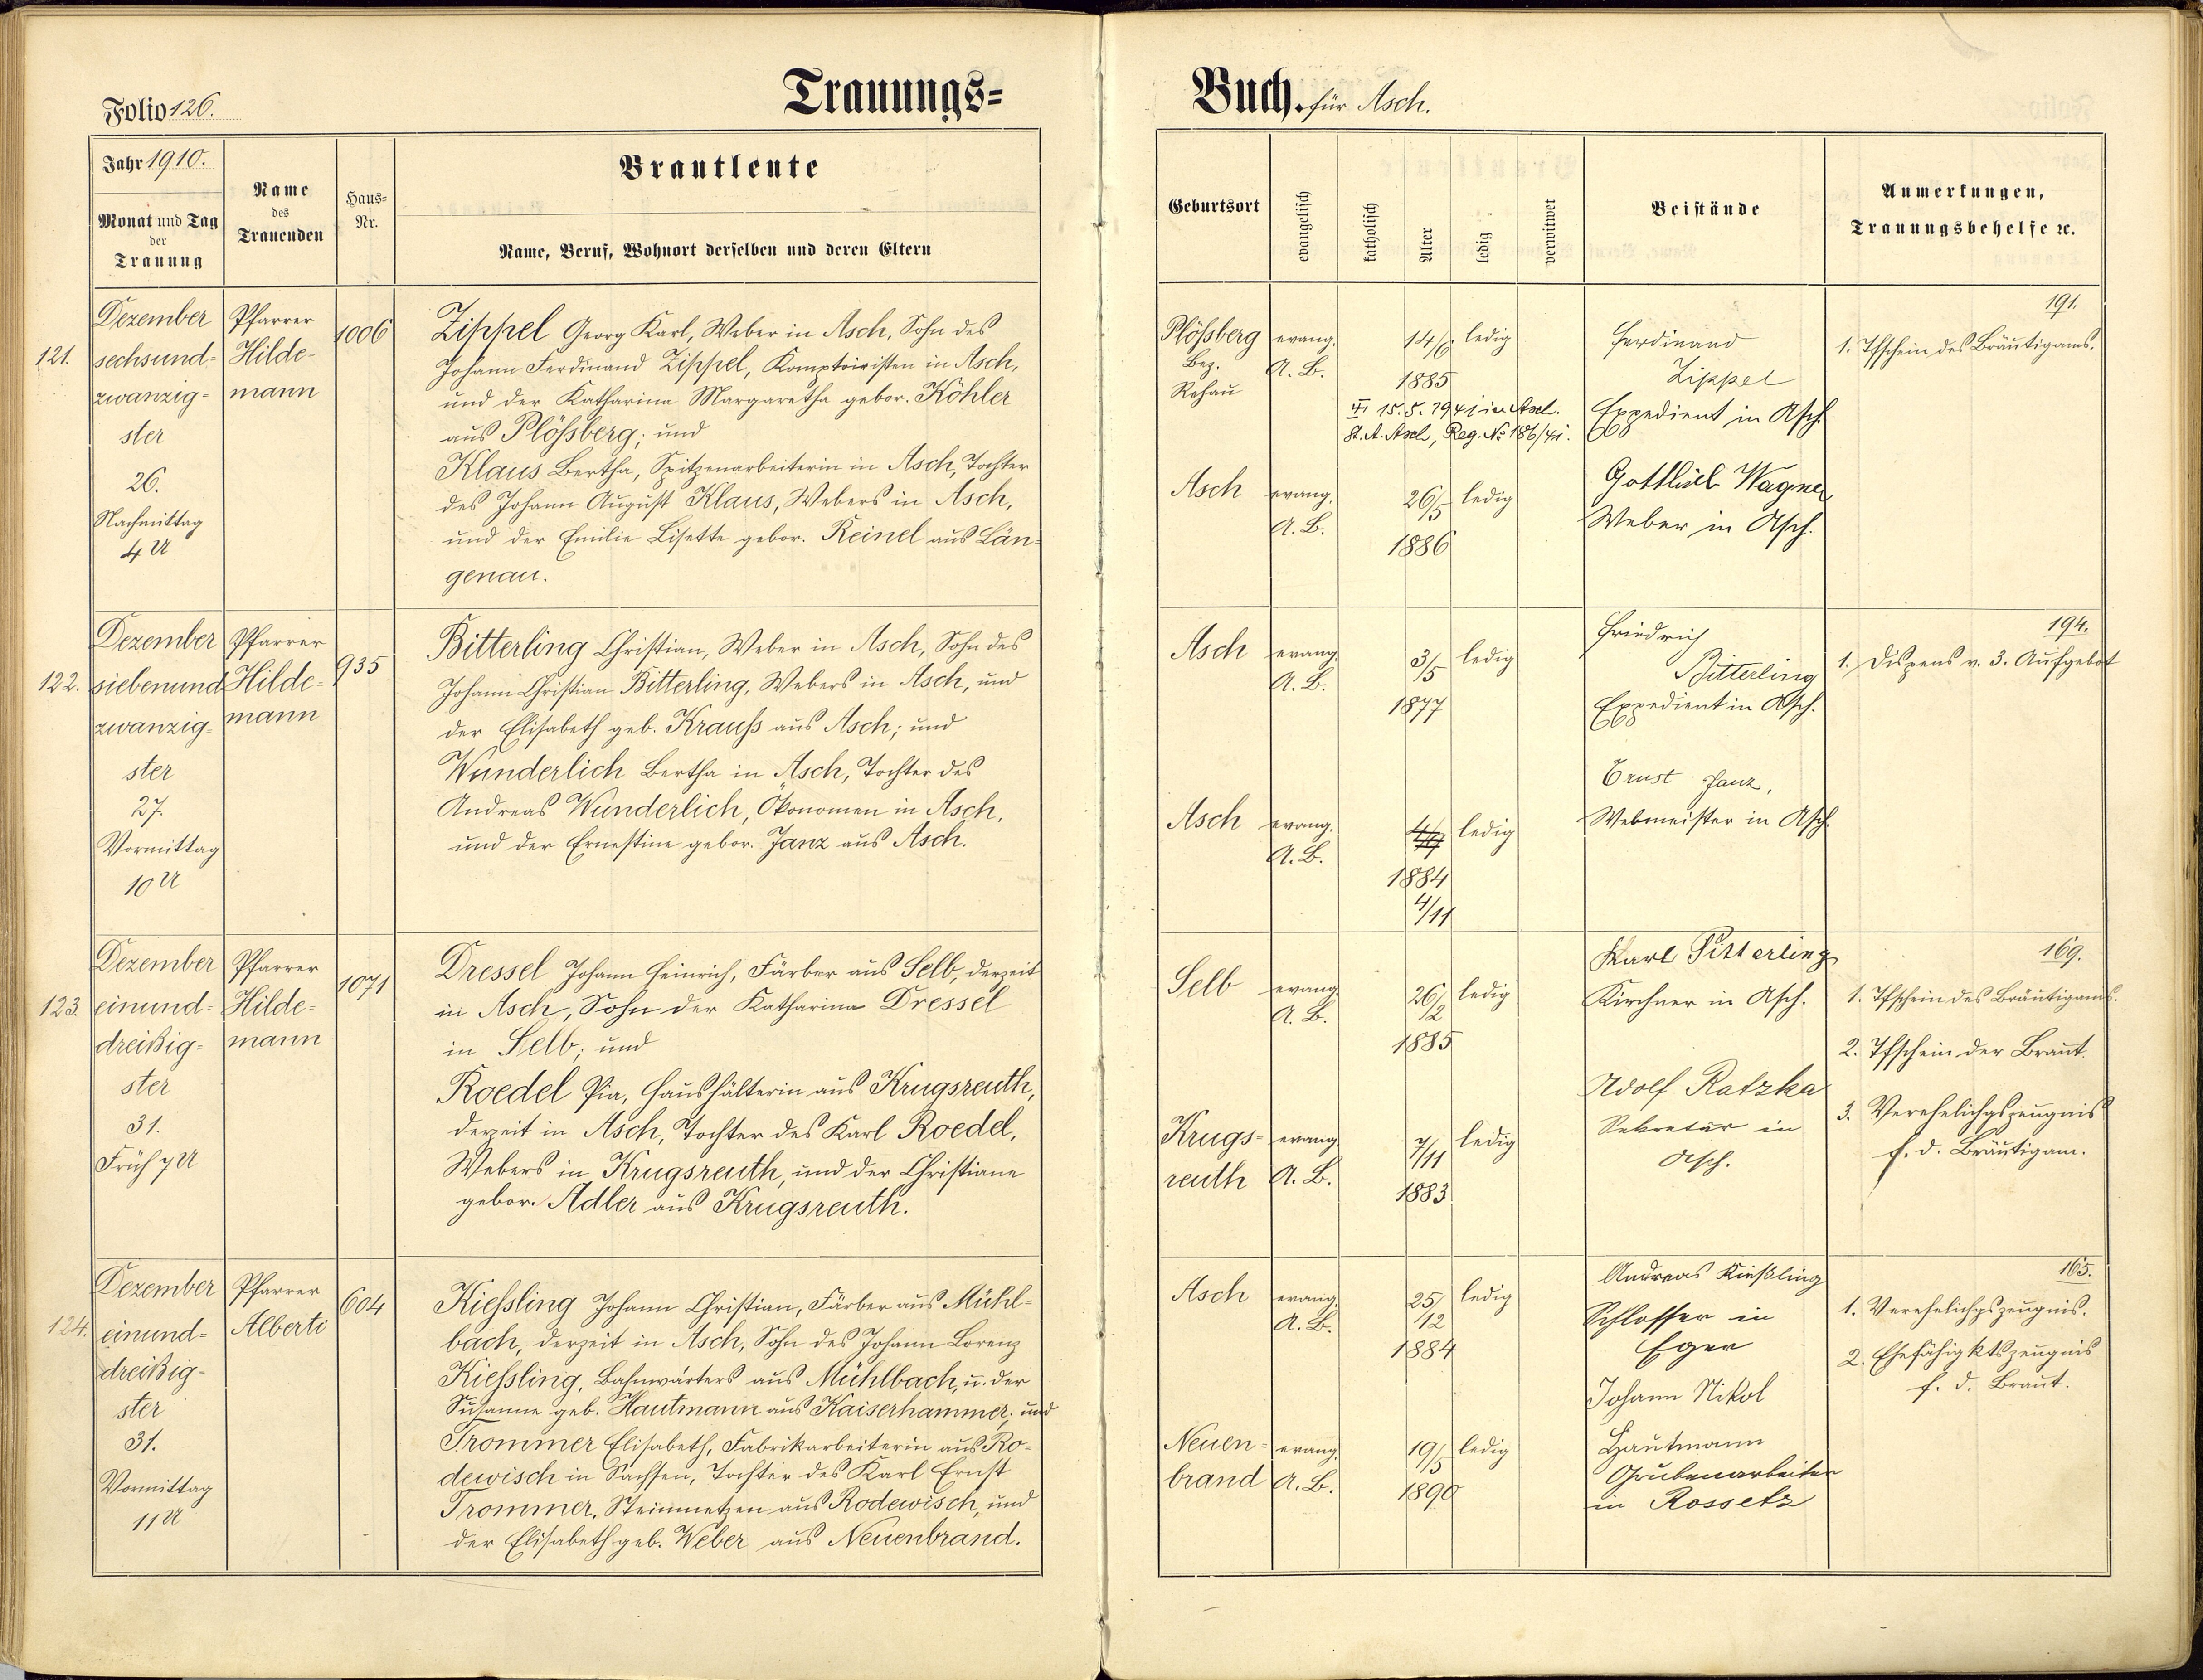 Folio 126.
Trauungs=
Jahr 1910.
Monat und Tag
der
Trauung
Name
des
Trauenden
Haus=
Nr.
Brautleute
Name, Beruf, Wohnort derselben und deren Eltern
121.
Dezember
sechsund=
zwanzig=
ster
26.
Nachmittag
4 U
Pfarrer
Hilde=
mann
1006
Zippel Georg Karl, Weber in Asch, Sohn des
Johann Ferdinand Zippel, Komptoiristen in Asch,
und der Katharina Margaretha gebor. Köhler
aus Plößberg; und
Klaus Bertha, Spitzenarbeiterin in Asch, Tochter
des Johann August Klaus, Webers in Asch,
und der Emilie Lisette gebor. Reinel aus Län=
genau.
122.
Dezember
siebenund
zwanzig=
ster
27.
Vormittag
10 U
Pfarrer
Hilde=
mann
935
Bitterling Christian, Weber in Asch, Sohn des
Johann Christian Bitterling, Webers in Asch, und
der Elisabeth geb. Krauß aus Asch; und
Wunderlich Bertha in Asch, Tochter des
Andreas Wunderlich, Ökonomen in Asch,
und der Ernestine gebor. Janz aus Asch.
123.
Dezember
einund=
dreißig=
ster
31.
Früh 7 U
Pfarrer
Hilde=
mann
1071
Dressel Johann Heinrich, Färber aus Selb, derzeit
in Asch, Sohn der Katharina Dressel
in Selb; und
Roedel Pia, Haushälterin aus Krugsreuth,
derzeit in Asch, Tochter des Karl Roedel,
Webers in Krugsreuth, und der Christiane
gebor. Adler aus Krugsreuth.
124.
Dezember
einund=
dreißig=
ster
31.
Vormittag
11 U
Pfarrer
Alberti
604
Kießling Johann Christian, Färber aus Mühl=
bach, derzeit in Asch, Sohn des Johann Lorenz
Kießling, Bahnwärters aus Mühlbach, u. der
Susanne geb. Hautmann aus Kaiserhammer; und
Trommer Elisabeth, Fabrikarbeiterin aus Ro=
dewisch in Sachsen, Tochter des Karl Ernst
Trommer, Steinmetzen aus Rodewisch, und
der Elisabeth geb. Weber aus Neuenbrand.
Buch. für Asch.
Geburtsort
evangelisch
katholisch
Alter
ledig
verwitwet
Beistände
Anmerkungen,
Trauungsbehelfe ꝛc.
Plößberg
Bez.
Rehau
evang.
A. B.
14/6.
1885
ledig
15. 5. 1941 in Asch.
St. A. Asch, Reg. No 186/41.
Ferdinand
Zippel
Expedient in Asch.
191.
1. Tfschein des Bräutigams.
Asch
evang.
A. B.
26/5
1886
ledig
Gottlieb Wagner
Weber in Asch.
Asch
evang.
A. B.
3/5
1877
ledig
Friedrich
Bitterling
Expedient in Asch.
194.
1. Dispens v. 3. Aufgebot
Asch
evang.
A. B.
1884
4/11
ledig
Ernst Janz,
Webmeister in Asch.
Selb
evang.
A. B.
26/2
1885
ledig
Karl Bitterling
Kirchner in Asch.
169.
1. Tfschein des Bräutigams.
2. Tfschein der Braut.
3. Verehelichgszeugnis
f. d. Bräutigam.
Krugs=
reuth
evang
A. B.
7/11
1883
ledig
Adolf Ratzka
Sekretär in
Asch.
Asch
evang.
A. B.
25/12
1884
ledig
Andreas Kießling
Schlosser in
Eger
165.
1. Verehelichgszeugnis.
2. Ehefähigktszeugnis
f. d. Braut.
Neuen=
brand
evang.
A. B.
19/5
1890
ledig
Johann Nikol
Hautmann
Grubenarbeiter
in Rossetz